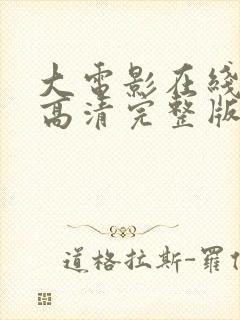 大电影在线
高清完整版
道格拉斯-羅